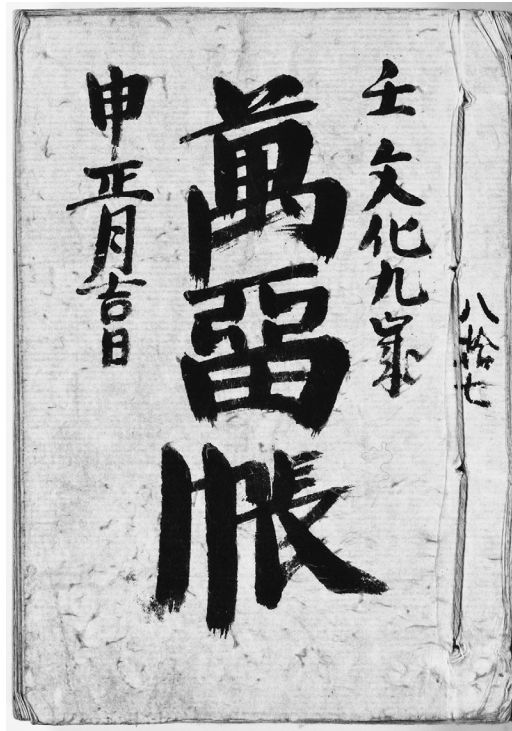 八拾七
壬文化九歳
萬留帳
申正月吉日